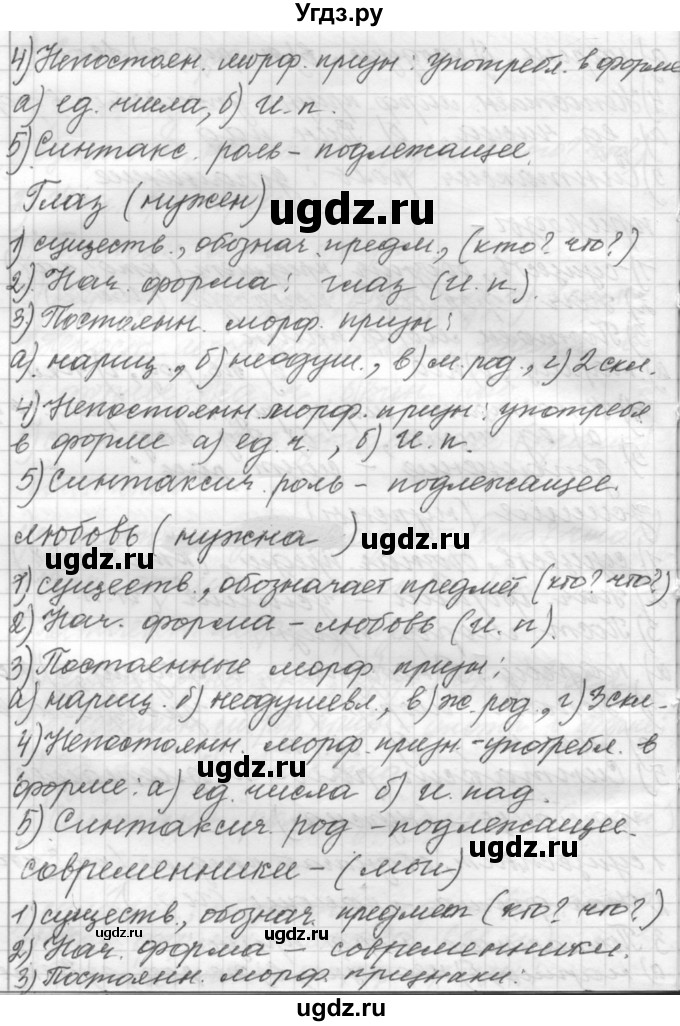 Угдз.ру
4) Непостоян. морф. призн: употребл. в форме
а) ед. числа, б) И. п.
5) Синтакс. роль - подлежащее.
Глаз (нужен)
ugdz.ru
1) существ., обознач. предм., (кто? что?)
2) Нач. форма: глаз (И. п.).
3) Постоянн. морф. призн:
а) нариц., б) неодуш., в) м. род., г) 2 скл.
4) Непостоянн. морф. призн: употребл.
в форме а) ед. ч., б) И. п.
5) Синтаксич. роль - подлежащее.
любовь (нужна)
ugdz.ru
ugdz.ru
1) существ., обозначает предмет (кто? что?)
2) Нач. форма - любовь (И. п).
3) Постоенные морф призн:
а) нариц. б) неодушевл., в) ж. род., г) 3 скл.
4) Непостоянн. морф. призн. - употребл. в
ugdz.ru
форме: а) ед. числа б) и. пад.
5) Синтаксич. род - подлежащее.
ugdz.ru
современники - (мои)
1) существ., обознач. предмет (кто? что?)
ugdz.ru
ugdz.ru
2) Нач. форма - современники.
3) Постоянн. морф. признаки:
ugdz.ru